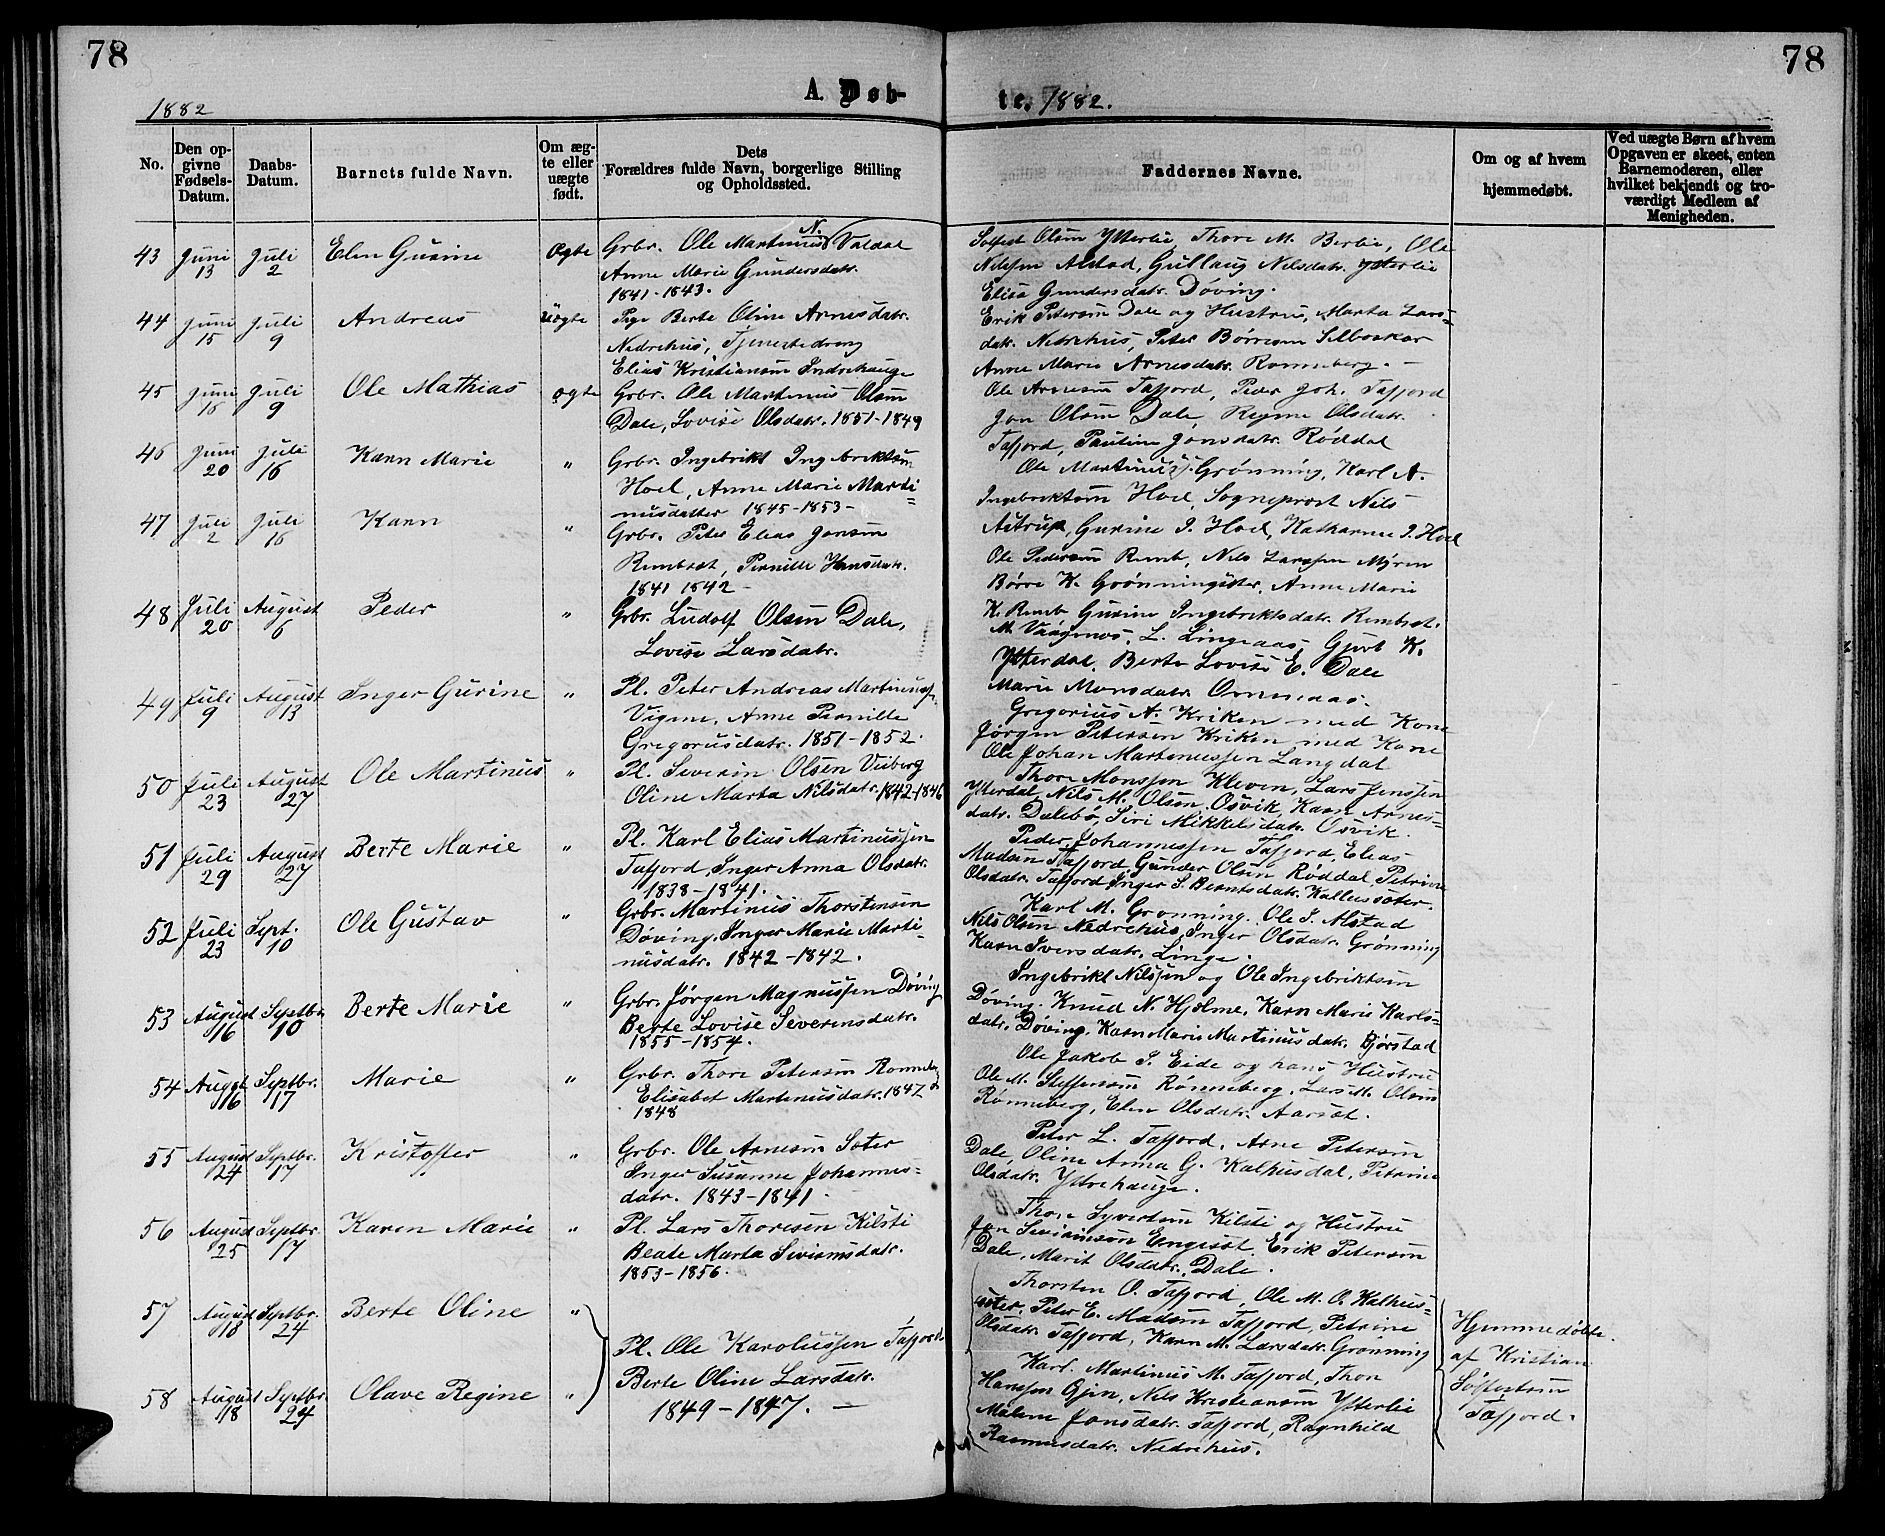 78
78
1882
A. Døb-
te. 1882.
No.
Den op-
givne
Fødsels-
Datum.
Daabs-
Datum.
Barnets fulde Navn.
Om æg-
te eller
uægte
født.
Dets
Forældres fulde Navn, borgerlige Stilling
og Opholdssted.
Faddernes Navne.
Om og af hvem
hjemmedøbt.
Ved uægte Børn af hvem
Opgaven er skeet, enten
Barnemoderen, eller
hvilket bekjendt og tro-
værdigt Medlem af
Menigheden.
43 Juni 13 Juli 2 Elen Gurine ægte Grbr. Ole Martinus N. Valdal
Anne Marie Gundersdatr.
1841-1843.
Solfest Olsen Ytterlie, Thore M. Berlie, Ole
Nilssen Alstad, Gullaug Nilsdatr. Ytterlie
Elise Gundersdatr. Døving.
44 Juni 15 Juli 9 Andreas Uægte Pige Berte Oline Arnesdatr.
Nedrehus, Tjenestedreng
Elias Kristiansen Indrehauge
Erik Petersen Dale og Hustru, Marta Lars-
datr. Nedrehus, Peter Børresen Selboskar
Anne Marie Arnesdatr. Rønneberg. -
45 Juni 15 Juli 9 Ole Mathias ægte Grbr. Ole Martinus Olsen
Dale, Lovise Olsdatr. 1851-1849
Ole Arnesen Tafjord, Peder Joh. Tafjord
Jon Olsen Dale, Regine Olsdatr.
Tafjord, Pauline Jonsdatr. Røddal
46 Juni 20 Juli 16 Karen Marie " Grbr. Ingebrikt Ingebriktsen
Hoel, Anne Marie Marti
nusdatter 1845-1853-
Ole Martinus J. Grønning, Karl A.
Ingebrektsen Hoel, Sogneprest Nils
Astrup, Gurine I. Hoel, Katharine I. Hoel
47 Juli 2 Juli 16 Karn " Grbr. Peter Elias Jonsen
Rembset, Pernille Hansdatr.
1841 1842-
Ole Pedersen Remb, Nils Larssen Myren
Børre K. Grønningsæter, Anne Marie
K. Remb Gurine Ingebriktsdatr. Rembset.
48 Juli 20 August 6 Peder " Grbr. Ludolf Olsen Dale,
Lovise Larsdatr.
M. Vaagenes, L. Lingeaas, Gjert K.
Ytterdal. Berte Lovise E. Dale
Marie Monsdatr. Ovneraas.
49 Juli 9 August 13 Inger Gurine " Pl. Peter Andreas Martinuss.
Vigene, Anne Pernille
Gregoriusdatr. 1851-1852.
Gregorius A. Kriken med Kone
Jørgen Petersen Kriken med Kone
Ole Johan Martinussen Langdal
50 Juli 23 August 27 Ole Martinus " Pl. Severin Olsen Viiberg
Oline Marta Nilsdatr. 1842-1846
Thore Monssen Kleven, Lars Jenssen
Ytterdal, Nils M. Olsen Osvik, Karn Arnes-
datr. Dalebø, Siri Mikkelsdatr. Osvik.
51 Juli 29 August 27 Berte Marie " Pl. Karl Elias Martinussen
Tafjord, Inger Anna Olsdatr.
1838-1841.
Peder Johannessen Tafjord, Elias
Madsen Tafjord, Gunder Olsen Røddal, Petrine
Olsdatr. Tafjord, Inger S. Berntsdatr. Kallussæter.
52 Juli 23 Sept. 10 Ole Gustav " Grbr. Martinus Thorstensen
Døving, Inger Marie Marti-
nusdatr. 1842-1842.
Karl M. Grønning. Ole S. Alstad
Nils Olsen Nedrehus, Inger Olsdatr. Grønning
Karn Iversdatr. Linge.
53 August 16 Septbr. 10 Berte Marie " Grbr. Jørgen Magnussen Døving
Berte Lovise Severensdatr.
1855-1854.
Ingebrikt Nilssen og Ole Ingebriktsen
Døving. Knud N. Hjelme, Karn Marie Karls-
datr. Døving. Karn Marie Martinusdatr. Bjørstad
54 Augst 16 Septbr. 17 Marie " Grbr. Thore Petersen Rønneberg
Elisabet Martinusdatr. 1847
1848
Ole Jakob S. Eide og hans Hustru
Ole M. Steffensen Rønneberg, Lars M. Olsen
Rønneberg, Elen Olsdatr. Aarset.
55 August 24 Septbr. 17 Kristoffer " Grbr. Ole Arnesen Sæter
Inger Susanne Johannes-
datr. 1843-1841.
Peter L. Tafjord, Arne Petersen
Dale, Oline Anna G. Kalhusdal, Petrine
Olsdatr. Ytrehauge.
56 August 25 Septbr. 17 Karen Marie " Pl. Lars Thoresen Kilsti
Beate Marta Sivertsdatr.
1853-1856.
Thore Syvertsen Kilsti og Hustru
Jon Sevrinsson Engeset. Erik Petersen
Dale, Marit Olsdatr. Dale.
57 August 18 Septbr. 24 Berte Oline "
58 August 18 Septbr. 24 Olave Regine "
Pl. Ole Karolussen Tafjord.
Berte Oline Larsdatr.
1849-1847. -
Thorsten O. Tafjord, Ole M. O. Kalhus-
sæter, Peter E. Madsen Tafjord, Petrine
Olsdatr. Tafjord, Karn M. Larsdatr. Grønning
Karl Martinus M. Tafjord, Thor
Hanssen Gjen, Nils Kristiansen Ytterlie
Malene Jonsdatr. Tafjord, Ragnhild
Rasmusdatr. Nedrehus.
Hjemmedøbte
af Kristian
Solfestsen
Tafjord.